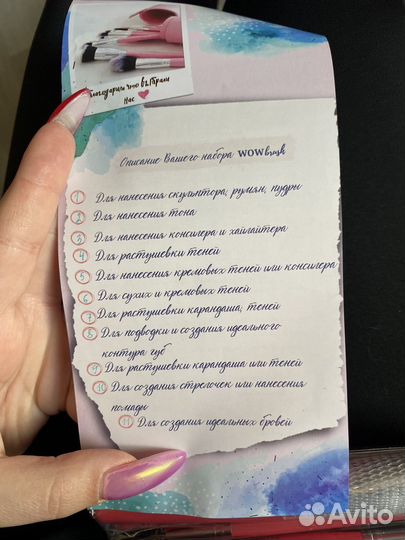 Благодарим что выбрали
нас
Описание Вашего набора WOWbrush
1 Для нанесения скульптора, румян, пудры
2 Для нанесения тона
3 Для нанесения консилера и хайлайтера
4 Для растушевки теней
5 Для нанесения кремовых теней или консилера
6 Для сухих и кремовых теней
7 Для растушевки карандаша, теней
8 Для подводки и создания идеального
контура губ
9 Для растушевки карандаша или теней
10 Для создания стрелочек или нанесения
помады
11 Для создания идеальных бровей
Avito